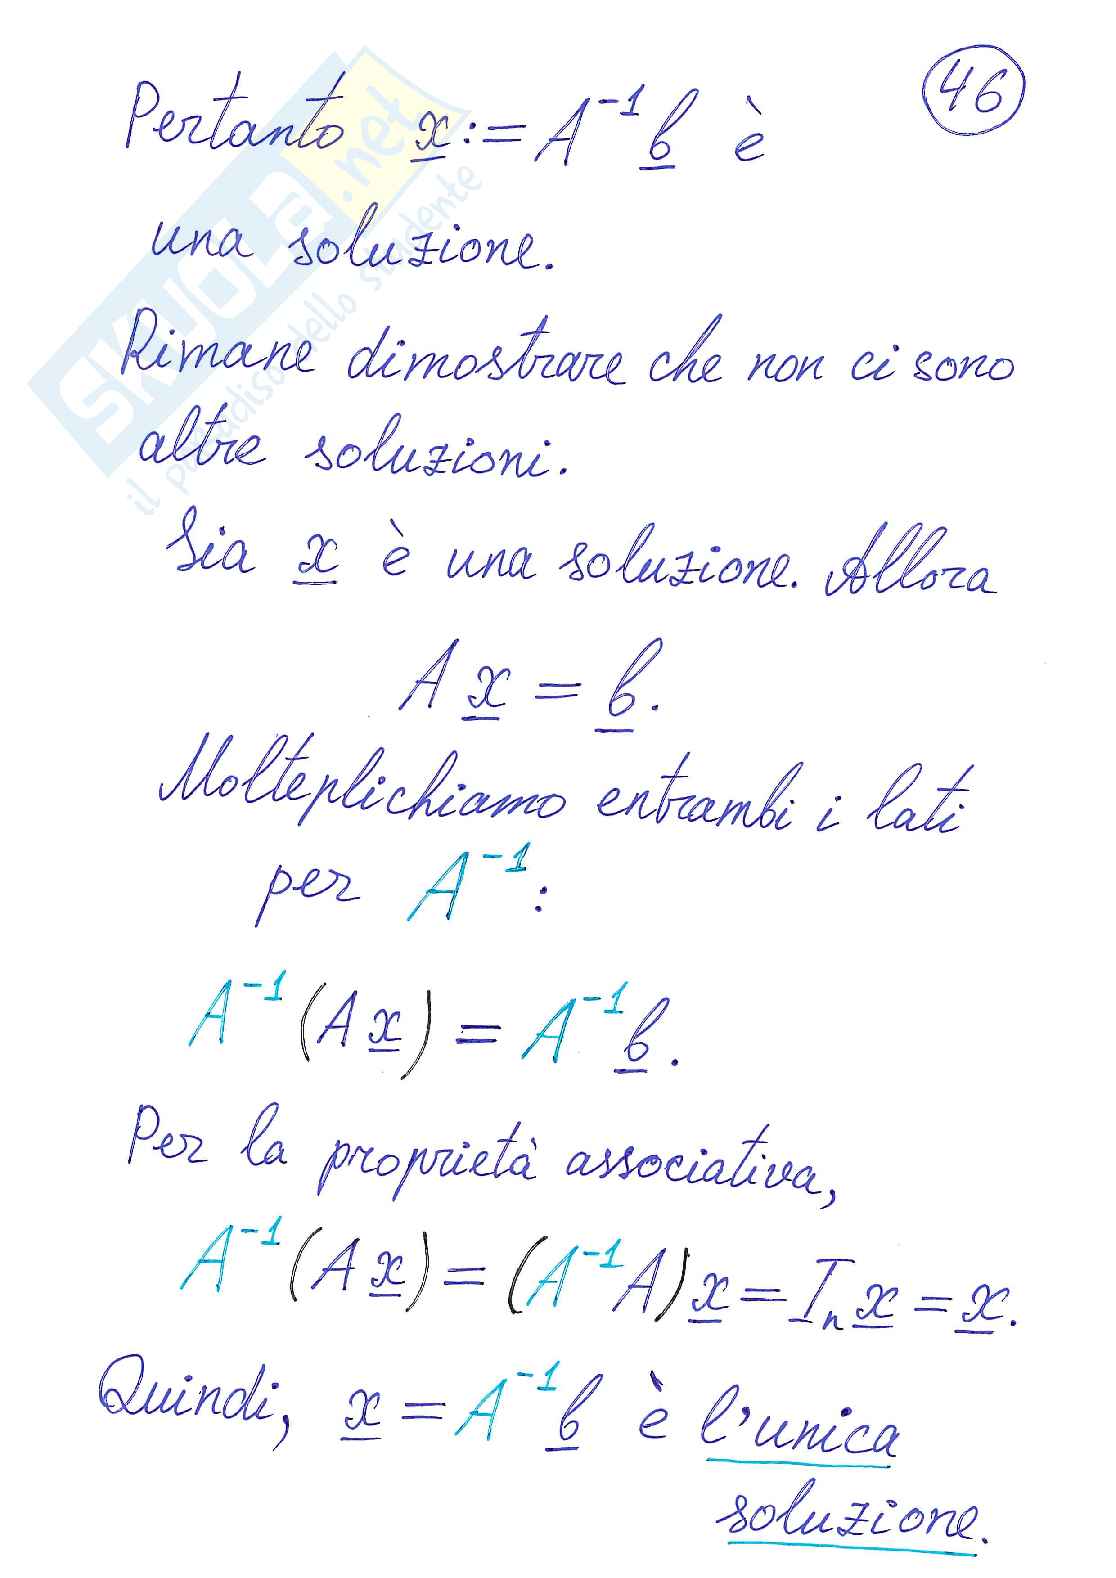 46
Pertanto x := A⁻¹ b è
una soluzione.
Rimane dimostrare che non ci sono
altre soluzioni.
Sia x è una soluzione. Allora
A x = b.
Molteplichiamo entrambi i lati
per A⁻¹:
A⁻¹(A x) = A⁻¹ b.
Per la proprietà associativa,
A⁻¹(A x) = (A⁻¹A) x = Iₙ x = x.
Quindi, x = A⁻¹ b è l'unica
soluzione.
SKUOLA.net
il paradiso dello studente